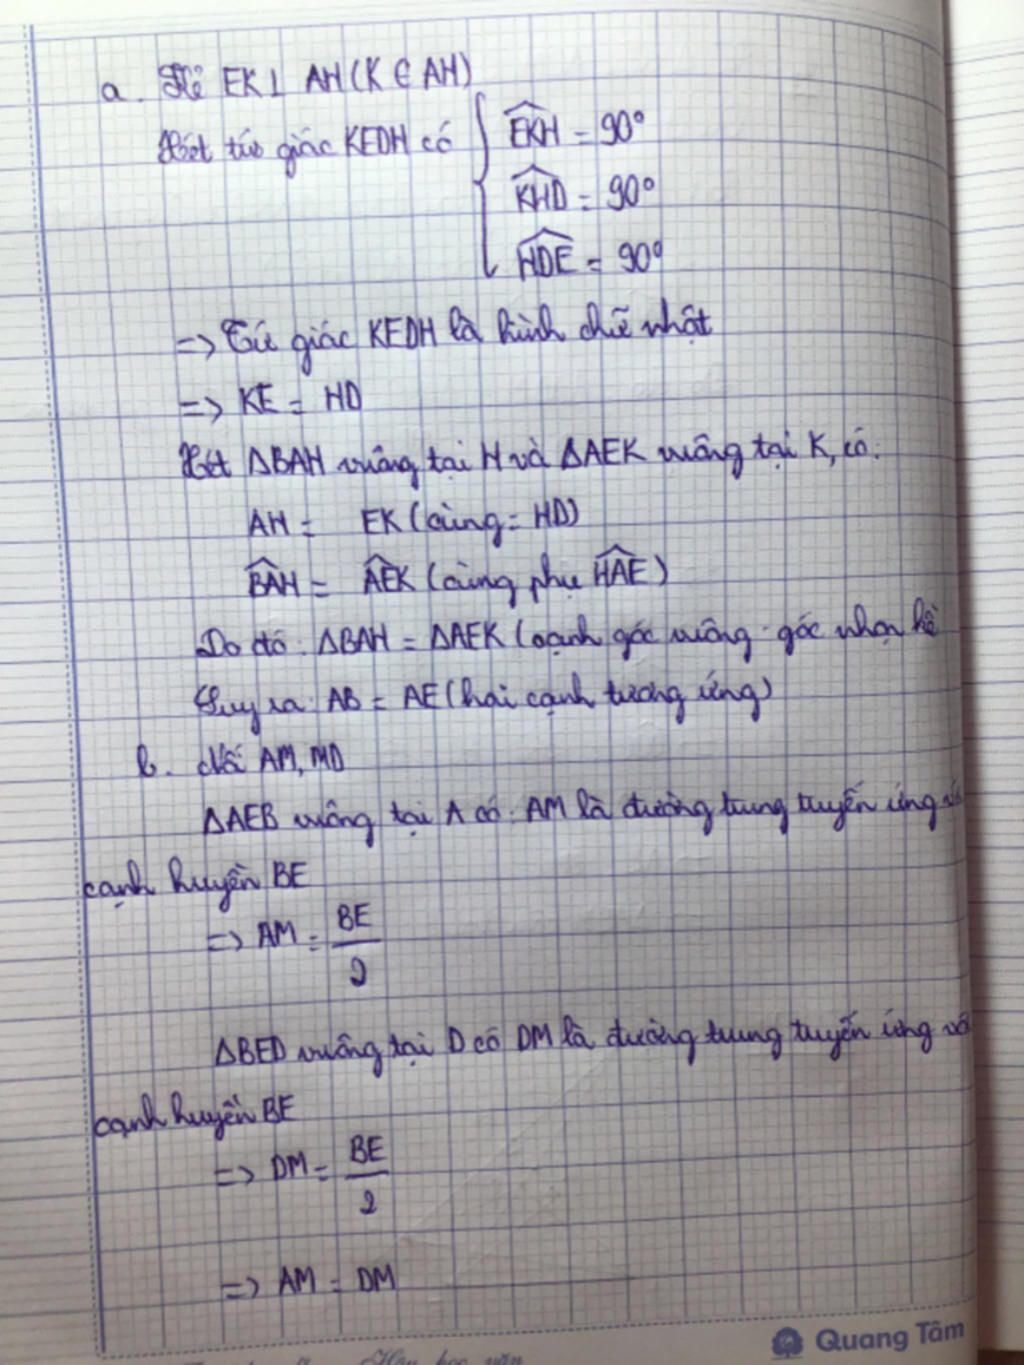 a. Kẻ EK⊥ AH (K ∈ AH)
Xét tứ giác KEDH có { EKH = 90°
KHD = 90°
HDE = 90°
=> Tứ giác KEDH là hình chữ nhật
=> KE = HD
Xét ΔBAH vuông tại H và ΔAEK vuông tại K, có:
AH = EK (cùng = HD)
BAH = AEK (cùng phụ HAE)
Do đó: ΔBAH = ΔAEK (cạnh góc vuông - góc nhọn kề
Suy ra: AB = AE (hai cạnh tương ứng)
b. Nối AM, MD
ΔAEB vuông tại A có: AM là đường trung tuyến ứng
cạnh huyền BE
=> AM = BE/2
ΔBED vuông tại D có DM là đường trung tuyến ứng
cạnh huyền BE
=> DM = BE/2
=> AM = DM
Quang Tâm